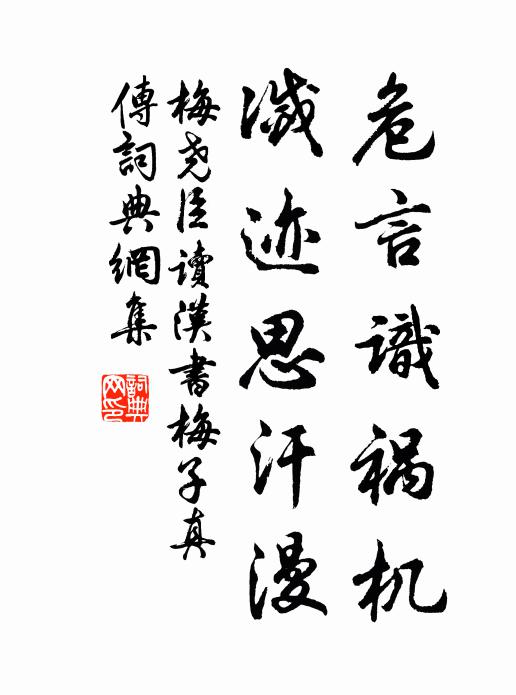 危言識祸机
滅迹思汗漫
梅尧臣讀漢書梅子真
傳詞典網集
詞典网印